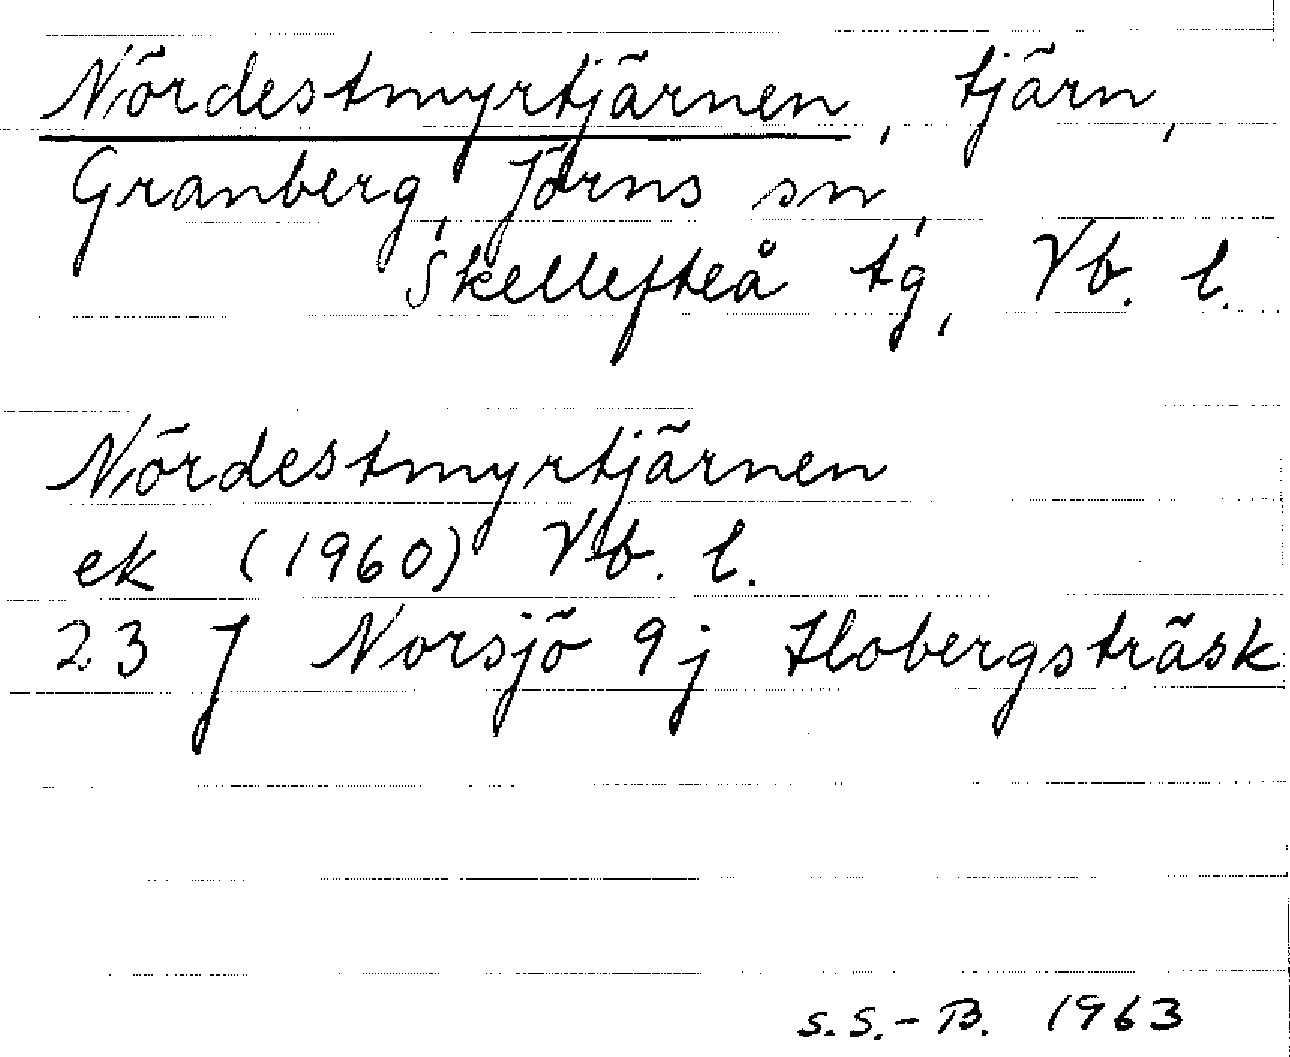 Nördestmyrtjärnen, tjärn,
Granberg, Jörns sn,
Skellefteå tg, Vb. l.
Nördestmyrtjärnen
ek (1960) Vb. l.
23 J Norsjö 9j Flobergsträsk
S.S.-B. 1963